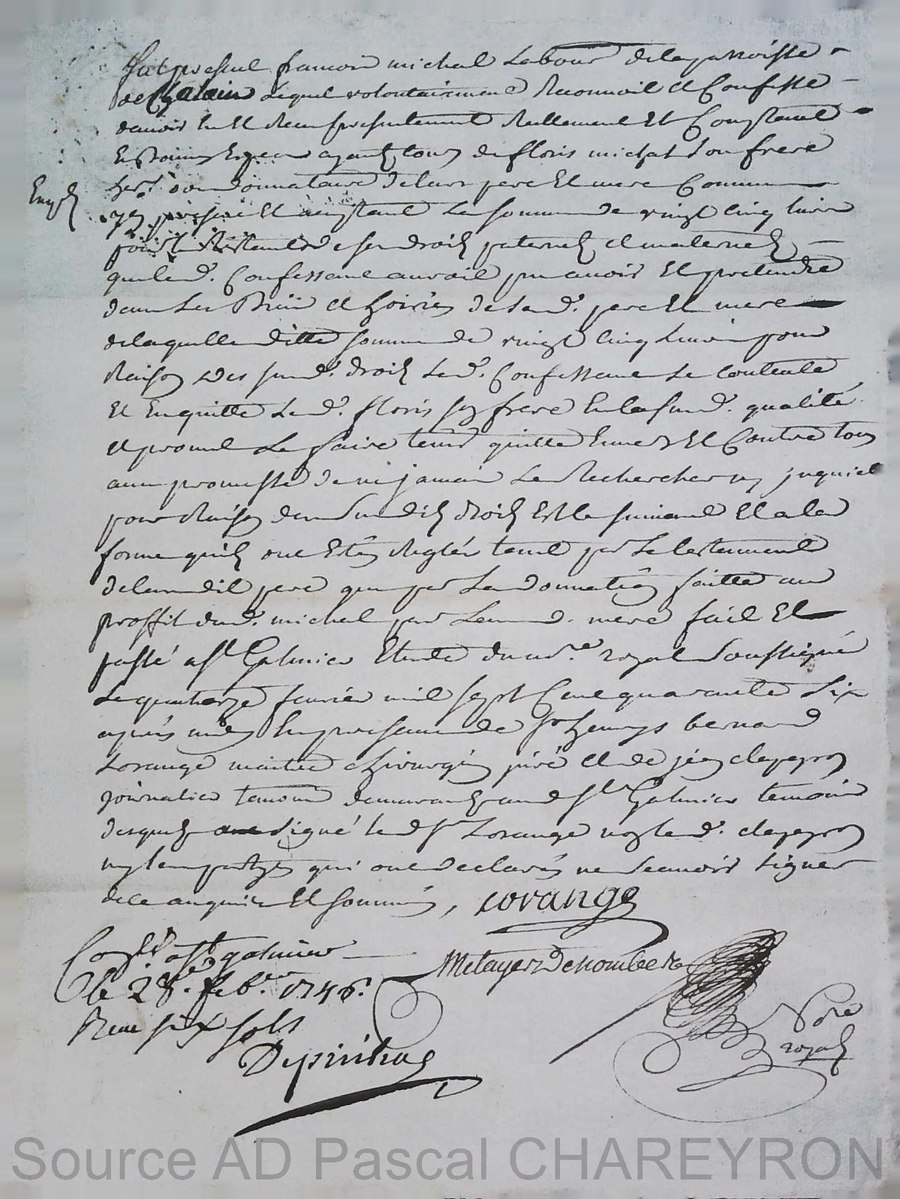 fut present françois michal Labour de la parroisse
de Chalain lequel volontairement Reconnoit et Confesse
davoir Eu et Receu presentement Reellement Et Comptant
En Bonnes Especes ayant cours de floris michal son frere
her. ou donnataire de leurs pere Et mere Communs
Exp.
present Et acceptant La somme de vingt cinq livres
pour Restant de ses droits paternels et maternels
que led. Confessant auroit pu avoir Et pretendre
dans Les Biens et hoiries de sesd. pere Et mere
de laquelle ditte somme de vingt cinq Livres pour
Raison des susd. droits Led. Confessant Se Contente
Et En quitte Led. floris son frere En la susd. qualité
et promet Le faire tenir quitte Envers Et Contre tous
avec promesse de ne jamais Le Rechercher ny inquieter
pour Raison des Susdits droits Et Le suivant Et a la
forme quils ont Estés Reglés tant par Le testament
de leurdit pere que par La donnation faitte au
proffit dud. michal par Leurd. mere fait Et
passé a St Galmier Etude du no.re royal Soussigné
Le quatorze fevrier mil sept Cent quarante six
apres midy En presence de Sr hemys bernard
Lorange maitre chirurgien juré et de jean clapeyron
journalier temoins demeurants aud St Galmier temoins
desquels a signé led Sr Lorange non led. clapeyron
ny les partyes qui ont declarés ne Scavoir signer
de ce enquis Et Sommés, Lorange
Con.lé a St galmier
le 28e feb.er 1746.
Metayer Denombre
Receu six sols
No.re
royal
Depinhac
Source AD Pascal CHAREYRON